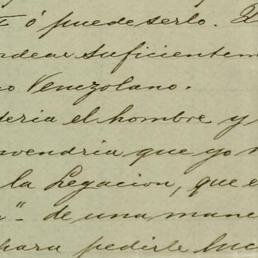 ó puede serlo.
ndear suficientem
o Venezolano.
teria el hombre y
nvendria que yo
la Legacion, que e
de una mane
para pedirle